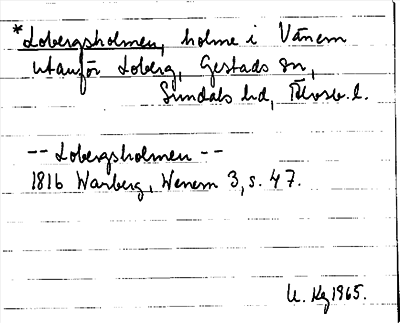 *Lobergsholmen, holme i Vänern
utanför Loberg, Gestads sn,
Sundals hd, Älvsb. l.
-- Lobergsholmen --
1816 Warberg, Wenern 3, s. 47.
1965.